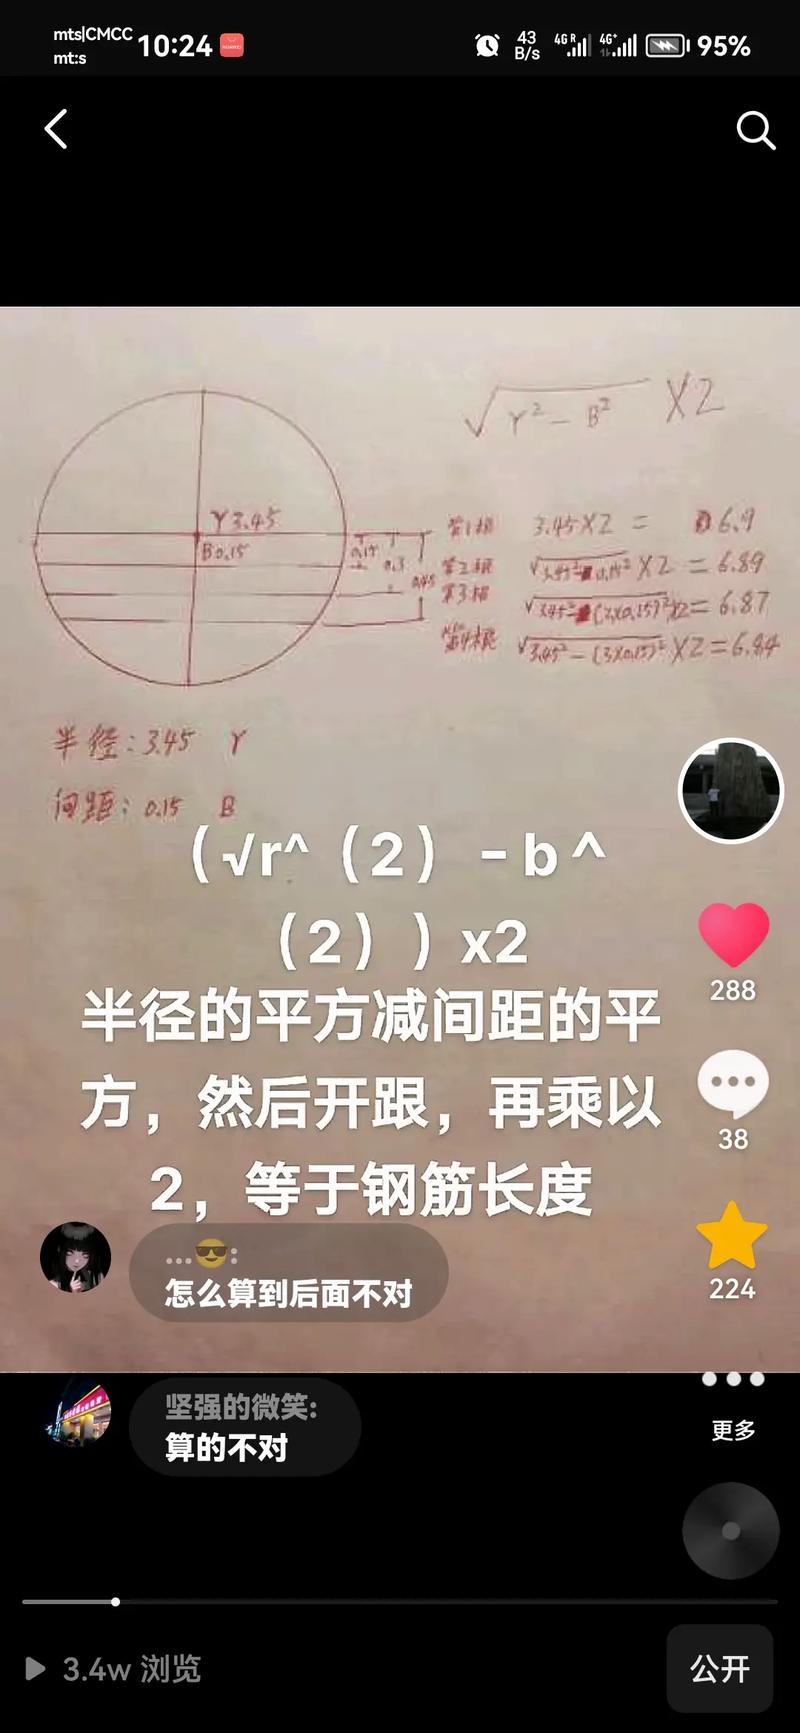 mts|CMCC
mt:s
10:24
43
B/s
4G R
4G+
95%
√r² - B² X2
r 3.45
B 0.15
0.15
0.3
0.45
第1根 3.45X2 = 6.9
第2根 √3.45² - 0.15² X2 = 6.89
第3根 √3.45² - (2X0.15)² X2 = 6.87
第4根 √3.45² - (3X0.15)² X2 = 6.84
半径：3.45 r
间距：0.15 B
（√r^（2）-b^
（2））x2
半径的平方减间距的平
方，然后开跟，再乘以
2，等于钢筋长度
288
38
...😎:
怎么算到后面不对
224
坚强的微笑:
算的不对
更多
3.4w 浏览
公开